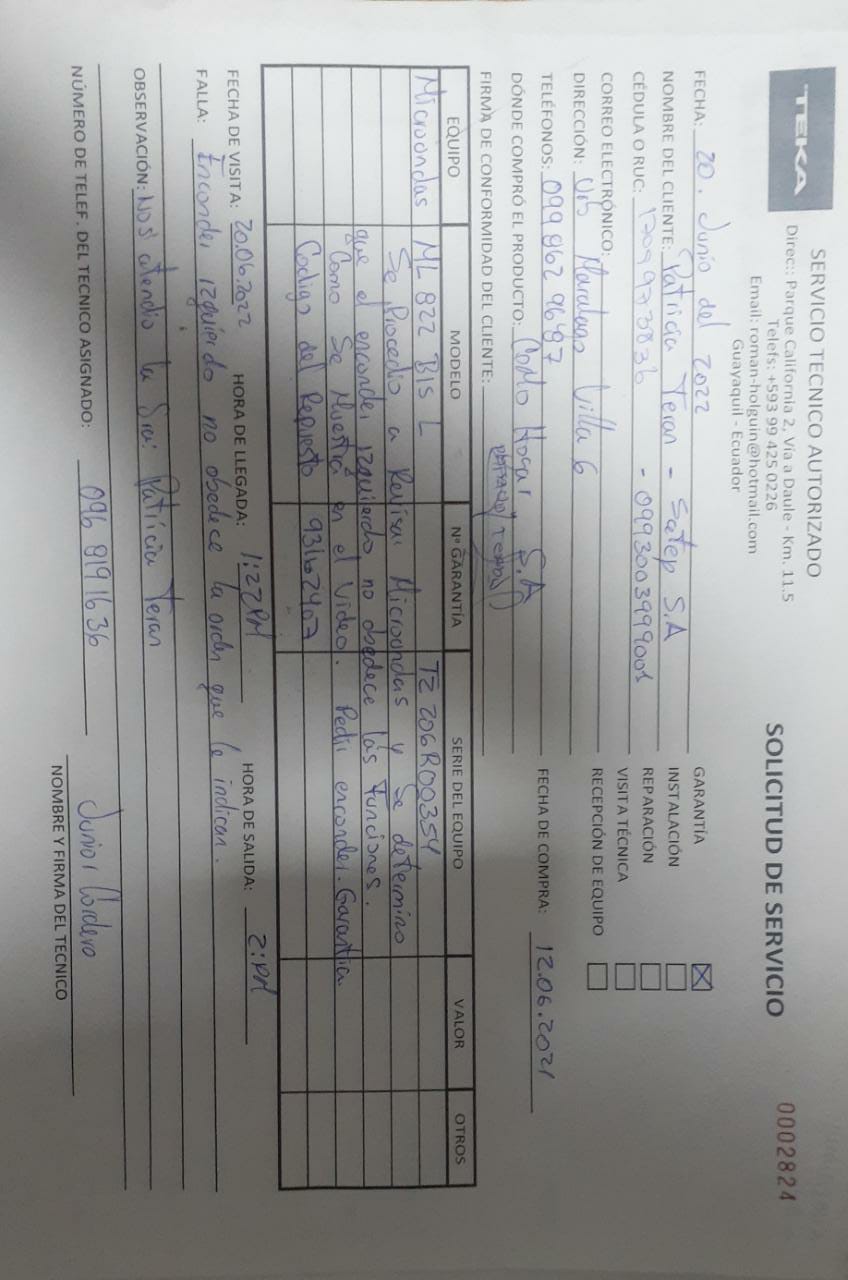 TEKA
SERVICIO TECNICO AUTORIZADO
Direc:: Parque California 2, Vía a Daule - Km. 11.5
Telefs: +593 99 425 0226
Email: roman-holguin@hotmail.com
Guayaquil - Ecuador
SOLICITUD DE SERVICIO
0002824
FECHA: 20. Junio del 2022
NOMBRE DEL CLIENTE: Patricia Teran - Satep S.A
CÉDULA O RUC: 1709973836 - 0993003999001
CORREO ELECTRÓNICO:
DIRECCIÓN: Urb Maralago Villa 6
TELÉFONOS: 099 862 9687
DÓNDE COMPRÓ EL PRODUCTO: Como Hogar S.A
FIRMA DE CONFORMIDAD DEL CLIENTE:
GARANTÍA
INSTALACIÓN
REPARACIÓN
VISITA TÉCNICA
RECEPCIÓN DE EQUIPO
FECHA DE COMPRA: 12.06.2021
EQUIPO MODELO Nº GARANTÍA SERIE DEL EQUIPO VALOR OTROS
Microondas ML 822 BIS L TZ 206R00354
Se Procedio a Revisar Microondas y Se determino
que el enconder izquierdo no obedece las Funciones.
Como Se Muestra en el Video. Pedir enconder. Garantia.
Codigo del Repuesto 93162407
FECHA DE VISITA: 20.06.2022 HORA DE LLEGADA: 1:22PM HORA DE SALIDA: 2:PM
FALLA: Enconder izquierdo no obedece la orden que le indican.
OBSERVACIÓN: Nos atendio la Sra: Patricia Teran
NÚMERO DE TELEF. DEL TECNICO ASIGNADO: 096 8191636
Junior Cordero
NOMBRE Y FIRMA DEL TECNICO